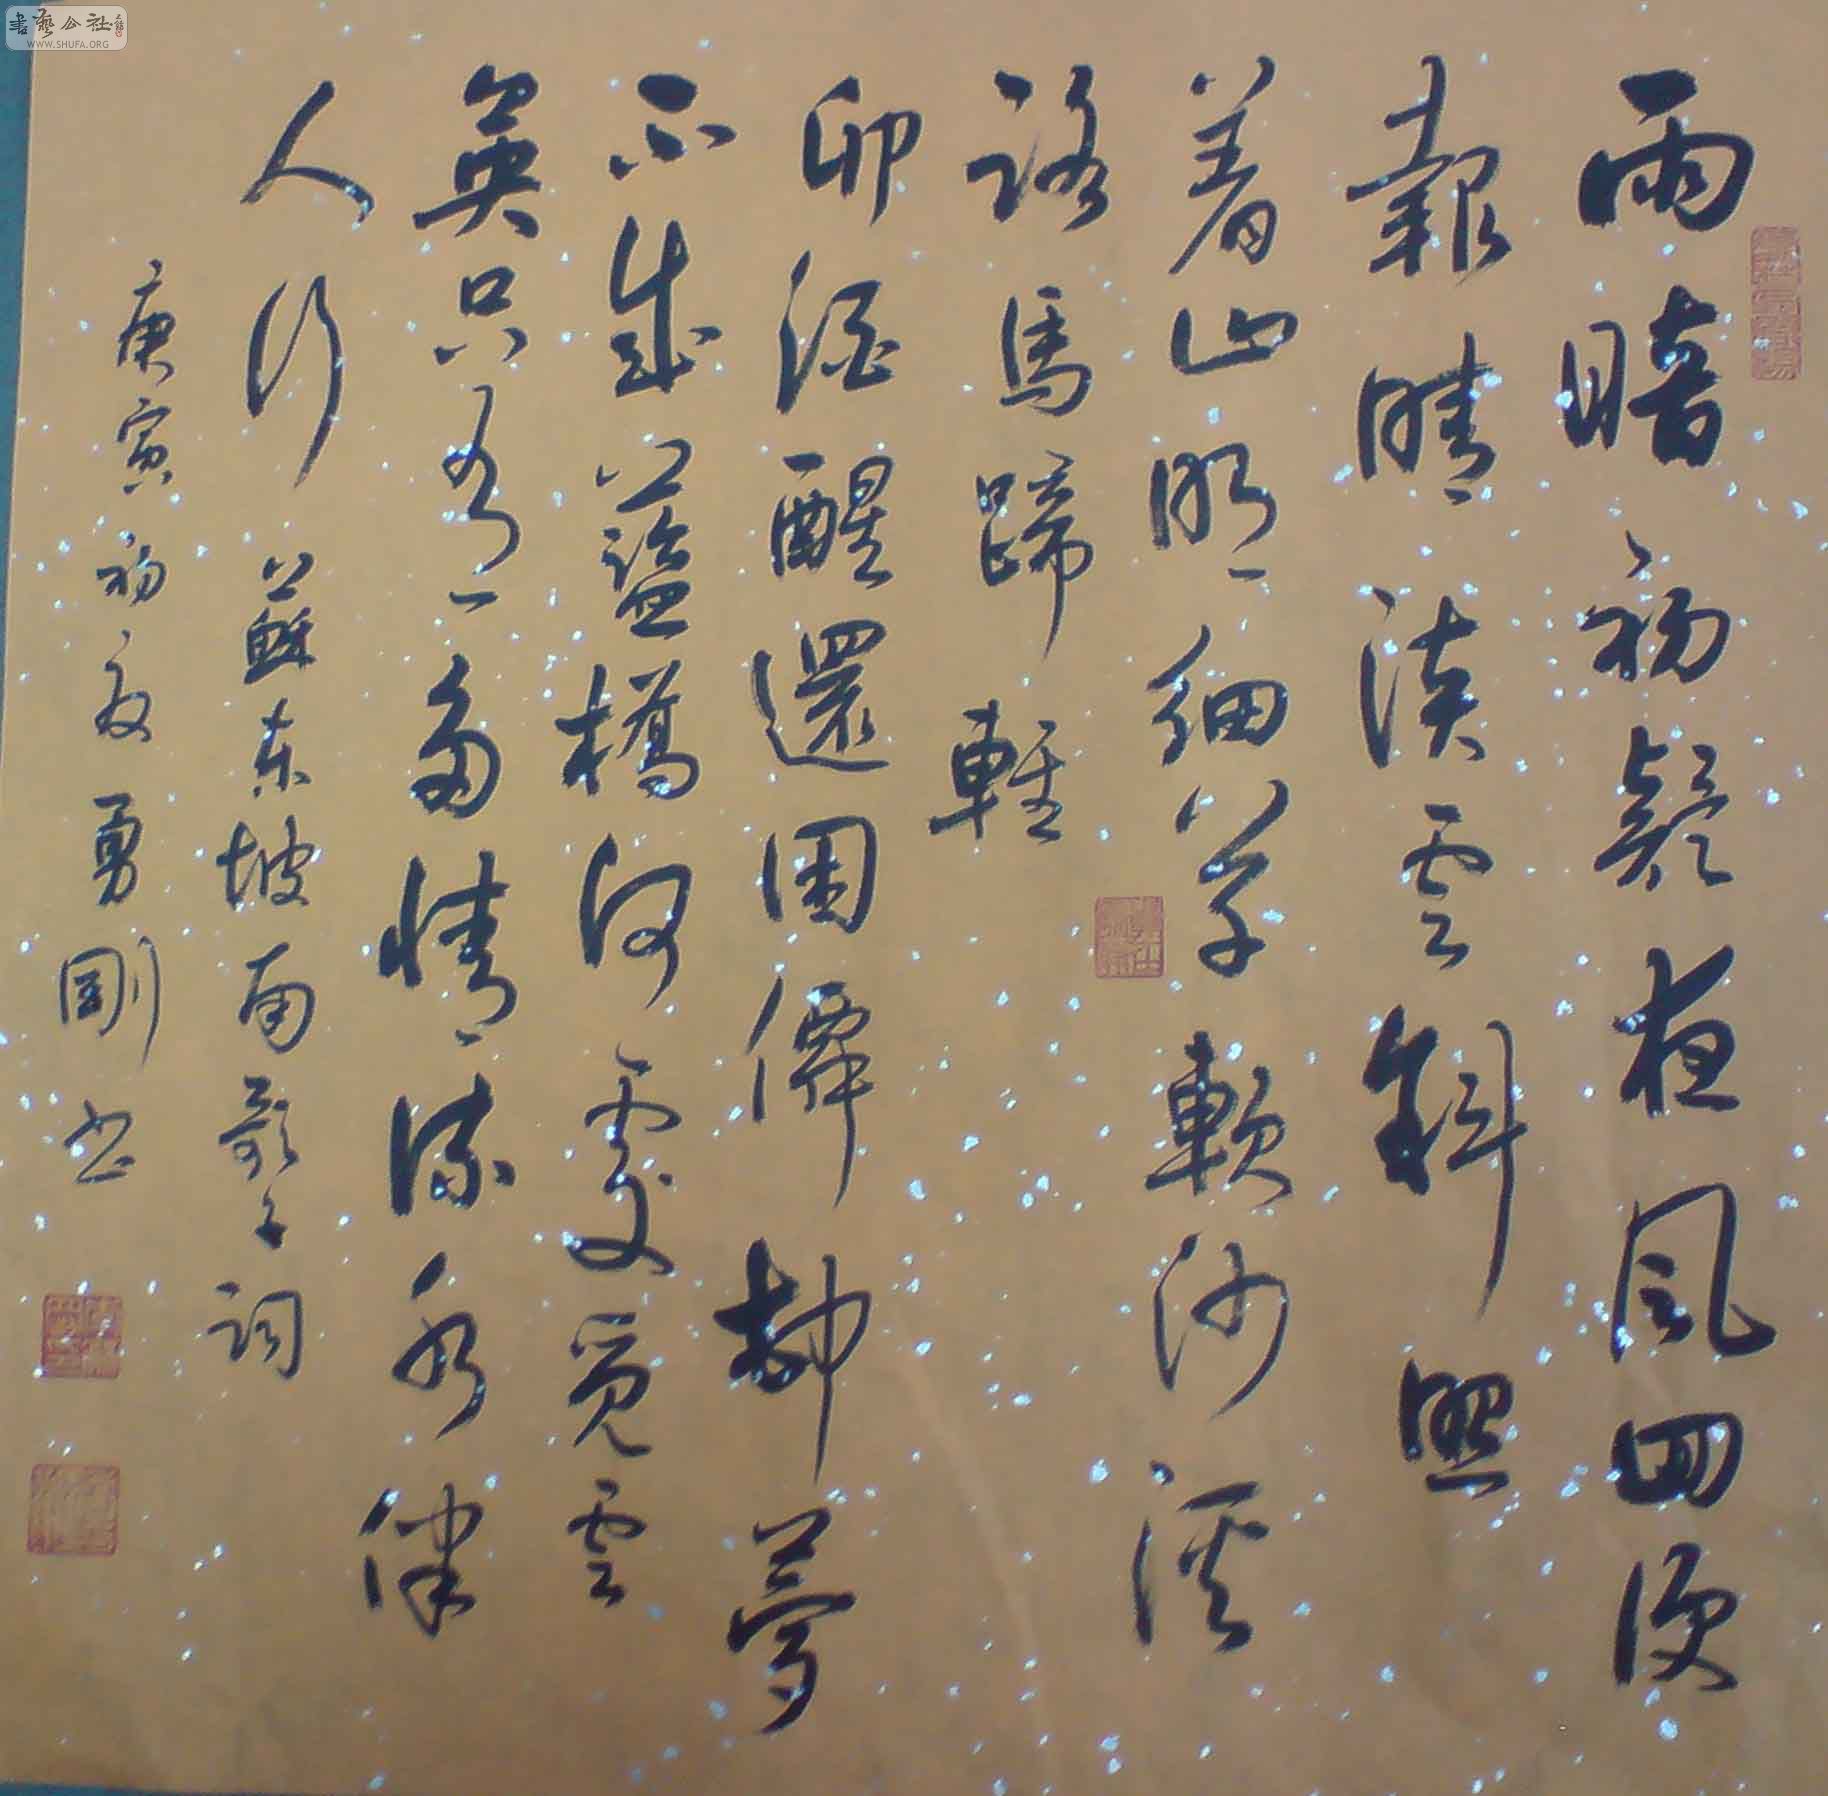 書藝公社
WWW.SHUFA.ORG
雨暗初疑夜風回便
報晴淡雲斜照
着山明細草軟沙溪
路馬蹄輕
卯酒醒還困僊邨夢
不成藍橋何處覓雲
英只有多情流水伴
人行 蘇東坡南歌子詞
庚寅初夏勇剛书